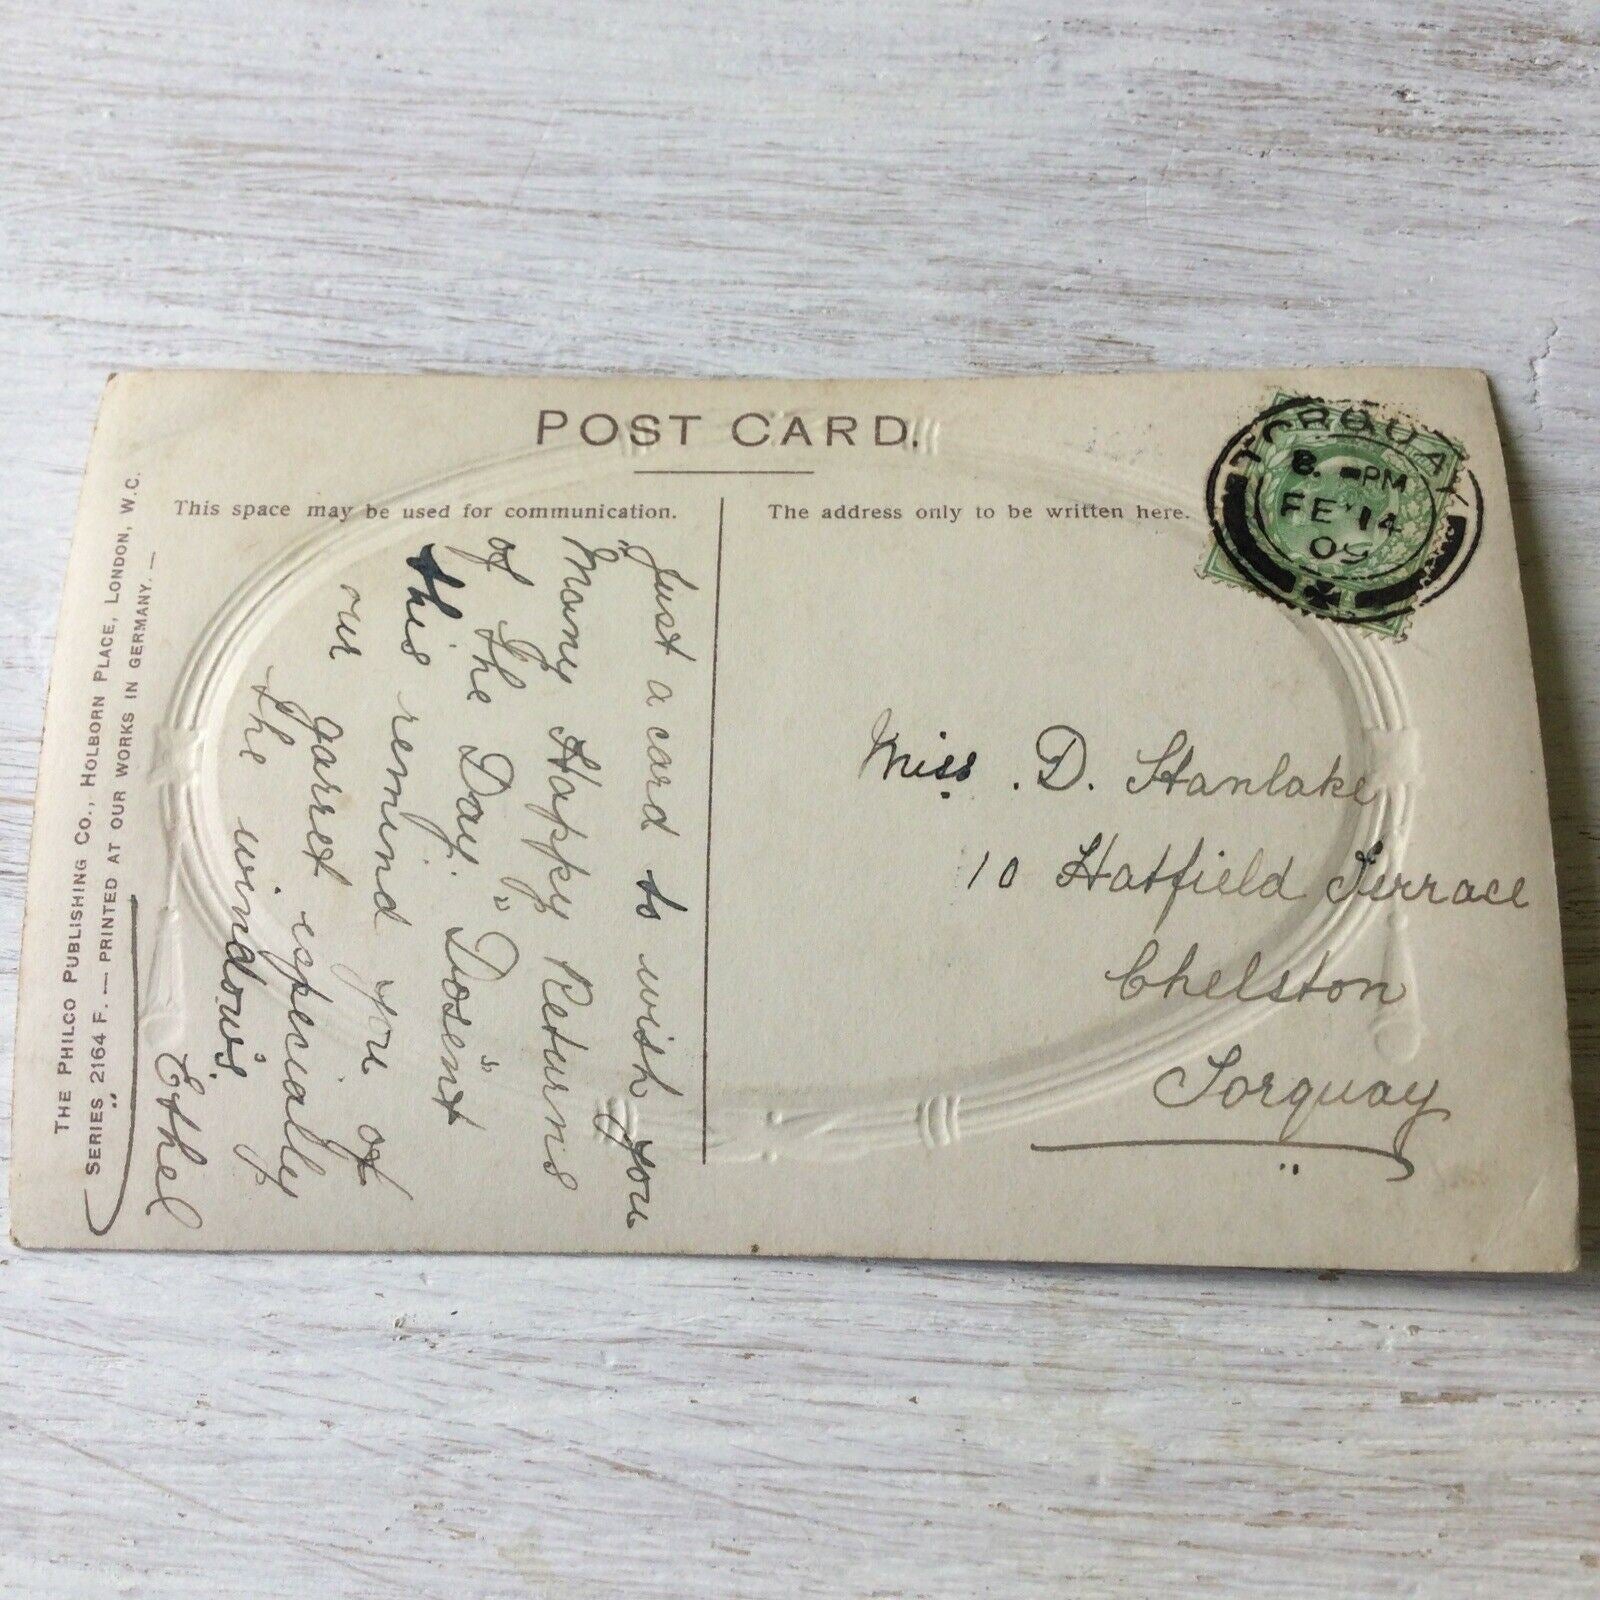 POST CARD.
This space may be used for communication.
The address only to be written here.
TORQUAY
8. PM
FE 14
09
"Just a card to wish you
Many Happy Returns
of The Day." Dosent
this remind you of
our garret especially
the windows.
Ethel
Miss. D. Stanlake
10 Hatfield Terrace
Chelston
Torquay
THE PHILCO PUBLISHING CO., HOLBORN PLACE, LONDON, W.C.
SERIES 2164 F. — PRINTED AT OUR WORKS IN GERMANY. —